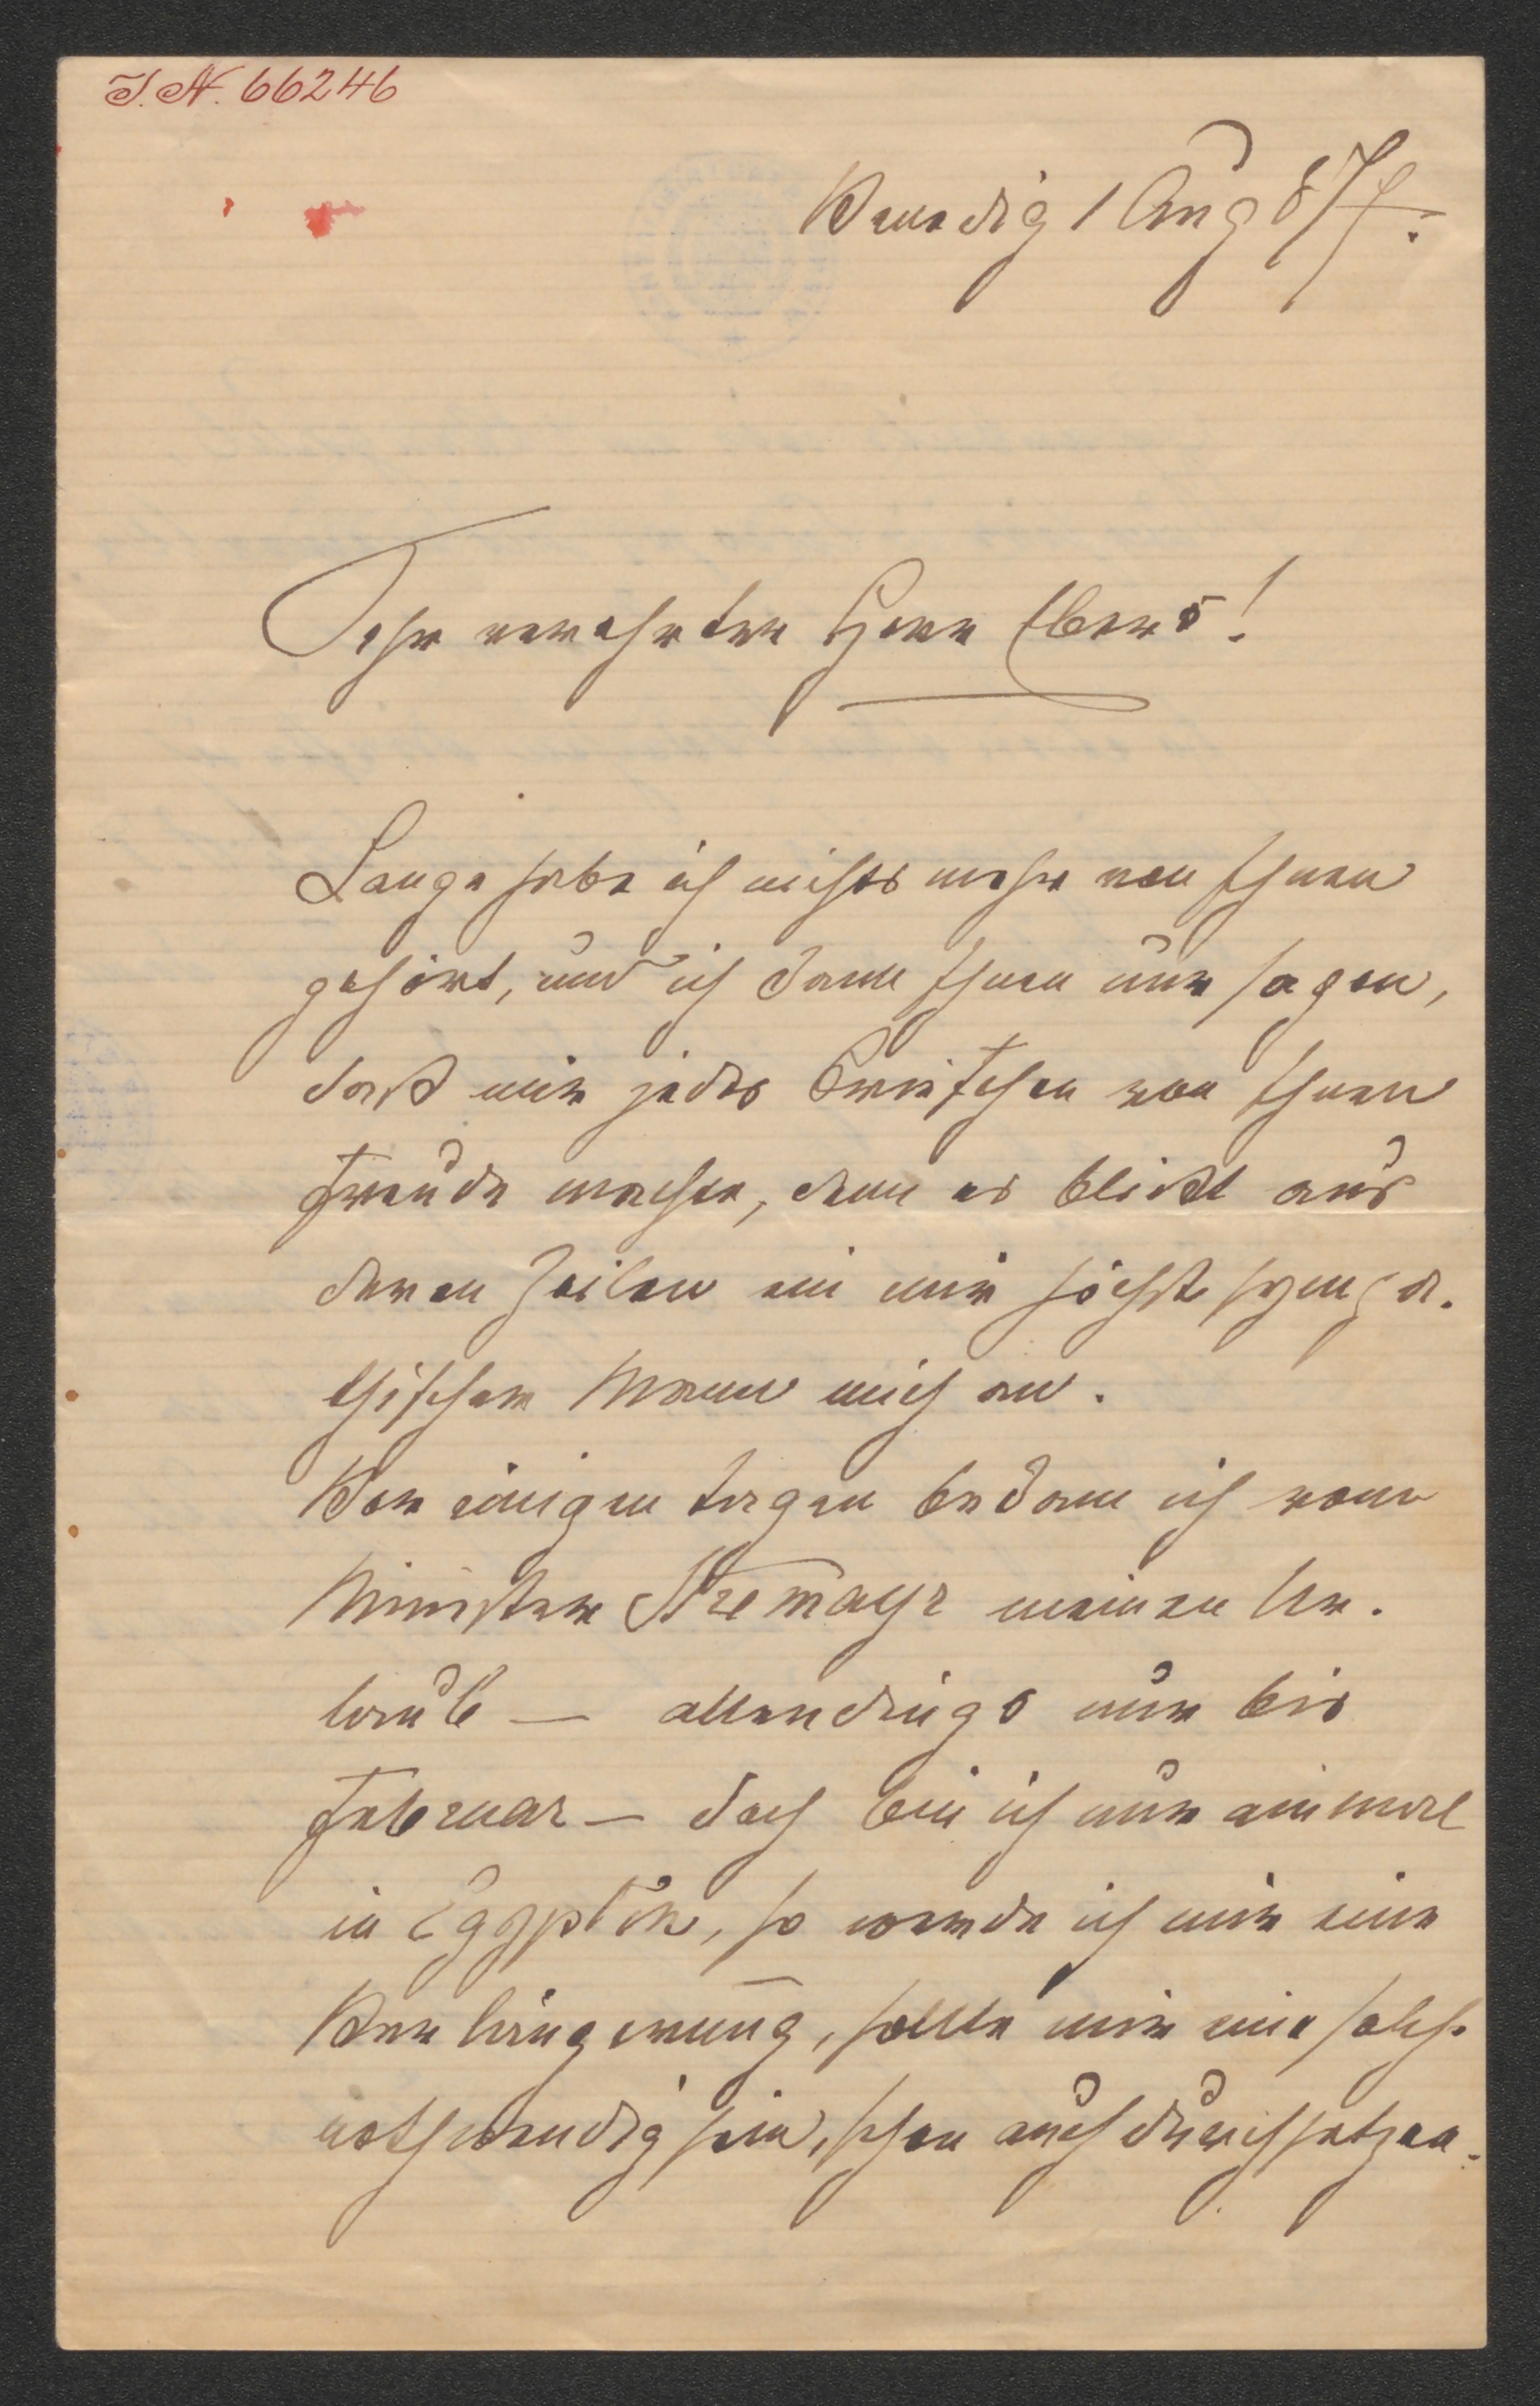 I.N. 66246
Venedig 1 Aug 877.
Sehr verehrter Herr Ebers!
Lange habe ich nichts mehr von Ihnen
gehört, und ich kann Ihnen nur sagen,
daß mir jedes Briefchen von Ihnen
Freude machte, denn es blickt aus
deren Zeilen ein mir höchst sympa-
thischer Mann mich an.
Vor einigen Tagen bekam ich vom
Minister Stremayr meinen Ur-
laub — allerdings nur bis
Februar — doch bin ich nur einmal
in Egypten, so werde ich mir eine
Verlängerung, sollte mir eine solche
nothwendig sein, schon auch durchsetzen.